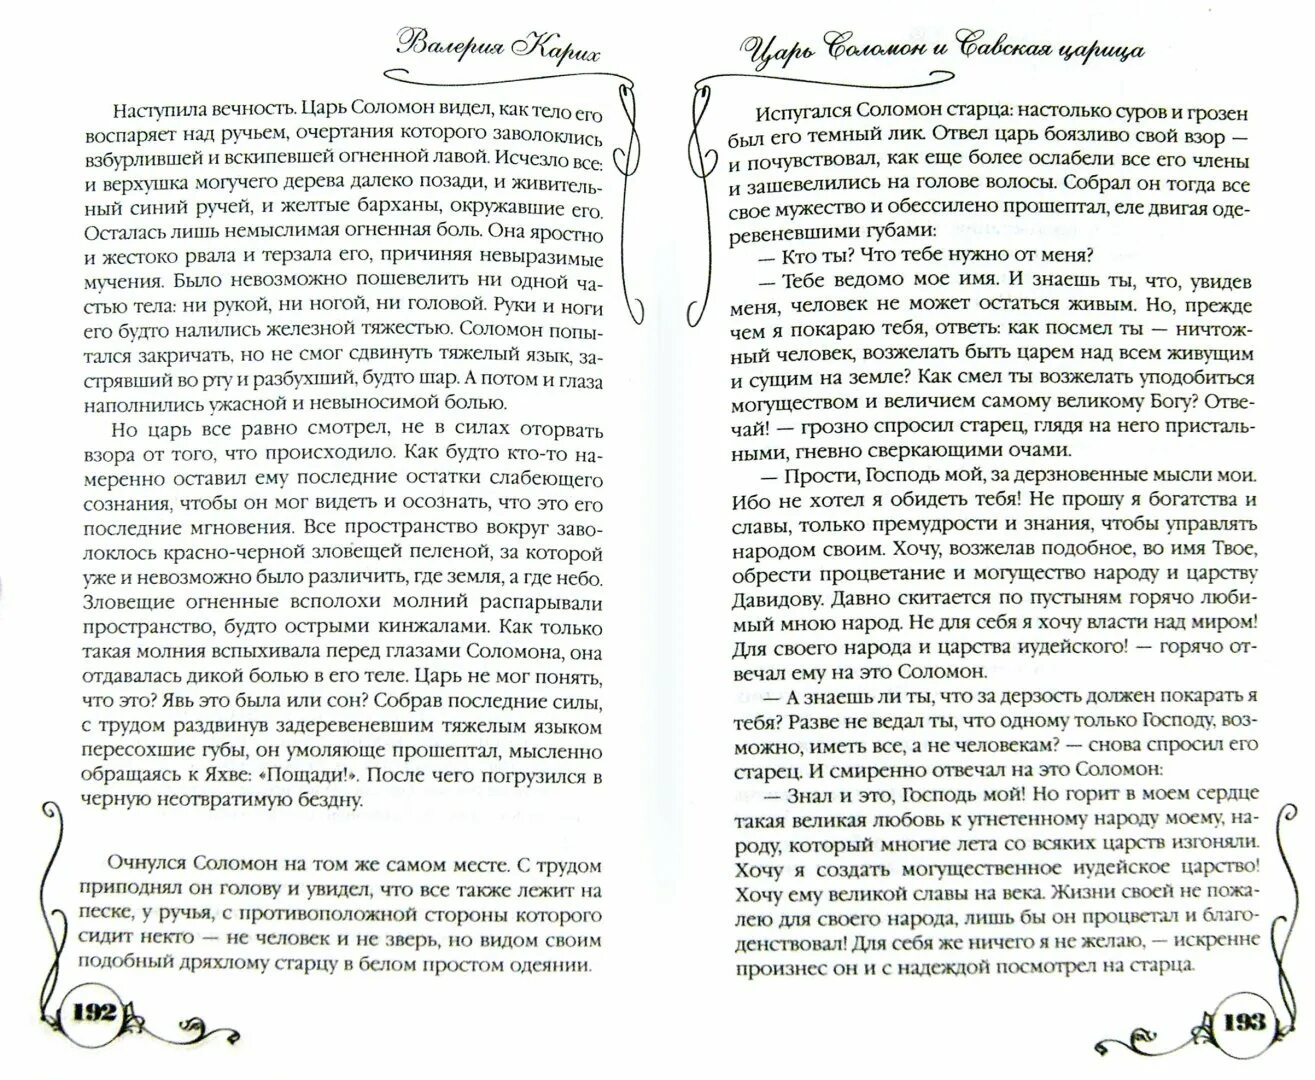 Валерия Карих
Наступила вечность. Царь Соломон видел, как тело его
воспаряет над ручьем, очертания которого заволоклись
взбурлившей и вскипевшей огненной лавой. Исчезло все:
и верхушка могучего дерева далеко позади, и живитель-
ный синий ручей, и желтые барханы, окружавшие его.
Осталась лишь немыслимая огненная боль. Она яростно
и жестоко рвала и терзала его, причиняя невыразимые
мучения. Было невозможно пошевелить ни одной ча-
стью тела: ни рукой, ни ногой, ни головой. Руки и ноги
его будто налились железной тяжестью. Соломон попы-
тался закричать, но не смог сдвинуть тяжелый язык, за-
стрявший во рту и разбухший, будто шар. А потом и глаза
наполнились ужасной и невыносимой болью.
Но царь все равно смотрел, не в силах оторвать
взора от того, что происходило. Как будто кто-то на-
меренно оставил ему последние остатки слабеющего
сознания, чтобы он мог видеть и осознать, что это его
последние мгновения. Все пространство вокруг заво-
локлось красно-черной зловещей пеленой, за которой
уже и невозможно было различить, где земля, а где небо.
Зловещие огненные всполохи молний распарывали
пространство, будто острыми кинжалами. Как только
такая молния вспыхивала перед глазами Соломона, она
отдавалась дикой болью в его теле. Царь не мог понять,
что это? Явь это была или сон? Собрав последние силы,
с трудом раздвинув задеревеневшим тяжелым языком
пересохшие губы, он умоляюще прошептал, мысленно
обращаясь к Яхве: «Пощади!». После чего погрузился в
черную неотвратимую бездну.
Очнулся Соломон на том же самом месте. С трудом
приподнял он голову и увидел, что все также лежит на
песке, у ручья, с противоположной стороны которого
сидит некто — не человек и не зверь, но видом своим
подобный дряхлому старцу в белом простом одеянии.
192
Царь Соломон и Савская царица
Испугался Соломон старца: настолько суров и грозен
был его темный лик. Отвел царь боязливо свой взор —
и почувствовал, как еще более ослабели все его члены
и зашевелились на голове волосы. Собрал он тогда все
свое мужество и обессилено прошептал, еле двигая оде-
ревеневшими губами:
— Кто ты? Что тебе нужно от меня?
— Тебе ведомо мое имя. И знаешь ты, что, увидев
меня, человек не может остаться живым. Но, прежде
чем я покараю тебя, ответь: как посмел ты — ничтож-
ный человек, возжелать быть царем над всем живущим
и сущим на земле? Как смел ты возжелать уподобиться
могуществом и величием самому великому Богу? Отве-
чай! — грозно спросил старец, глядя на него присталь-
ными, гневно сверкающими очами.
— Прости, Господь мой, за дерзновенные мысли мои.
Ибо не хотел я обидеть тебя! Не прошу я богатства и
славы, только премудрости и знания, чтобы управлять
народом своим. Хочу, возжелав подобное, во имя Твое,
обрести процветание и могущество народу и царству
Давидову. Давно скитается по пустыням горячо люби-
мый мною народ. Не для себя я хочу власти над миром!
Для своего народа и царства иудейского! — горячо от-
вечал ему на это Соломон.
— А знаешь ли ты, что за дерзость должен покарать я
тебя? Разве не ведал ты, что одному только Господу, воз-
можно, иметь все, а не человекам? — снова спросил его
старец. И смиренно отвечал на это Соломон:
— Знал и это, Господь мой! Но горит в моем сердце
такая великая любовь к угнетенному народу моему, на-
роду, который многие лета со всяких царств изгоняли.
Хочу я создать могущественное иудейское царство!
Хочу ему великой славы на века. Жизни своей не пожа-
лею для своего народа, лишь бы он процветал и благо-
денствовал! Для себя же ничего я не желаю, — искренне
произнес он и с надеждой посмотрел на старца.
193